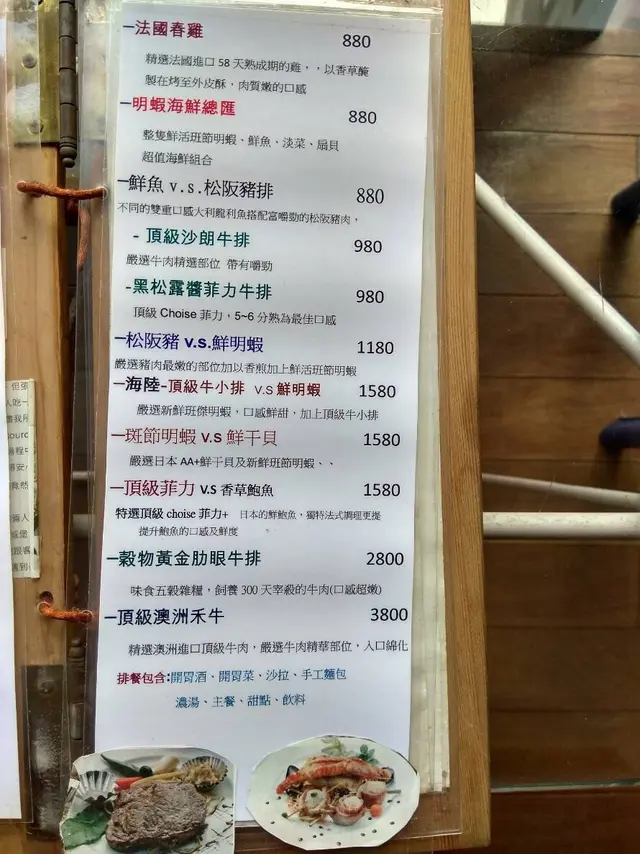 一法國春雞 880
精選法國進口 58 天熟成期的雞，，以香草醃
製在烤至外皮酥，肉質嫩的口感
一明蝦海鮮總匯 880
整隻鮮活班節明蝦、鮮魚、淡菜、扇貝
超值海鮮組合
一鮮魚 v.s.松阪豬排 880
不同的雙重口感大利龍利魚搭配富嚼勁的松阪豬肉，
- 頂級沙朗牛排 980
嚴選牛肉精選部位 帶有嚼勁
-黑松露醬菲力牛排 980
頂級 Choise 菲力，5~6 分熟為最佳口感
一松阪豬 v.s.鮮明蝦 1180
嚴選豬肉最嫩的部位加以香煎加上鮮活班節明蝦
一海陸-頂級牛小排 V.S 鮮明蝦 1580
嚴選新鮮班傑明蝦，口感鮮甜，加上頂級牛小排
一斑節明蝦 V.S 鮮干貝 1580
嚴選日本 AA+鮮干貝及新鮮班節明蝦、、
一頂級菲力 V.S 香草鮑魚 1580
特選頂級 choise 菲力+ 日本的鮮鮑魚，獨特法式調理更提
提升鮑魚的口感及鮮度
一穀物黃金肋眼牛排 2800
味食五穀雜糧，飼養 300 天宰殺的牛肉(口感超嫩)
一頂級澳洲禾牛 3800
精選澳洲進口頂級牛肉，嚴選牛肉精華部位，入口綿化
排餐包含:開胃酒、開胃菜、沙拉、手工麵包
濃湯、主餐、甜點、飲料